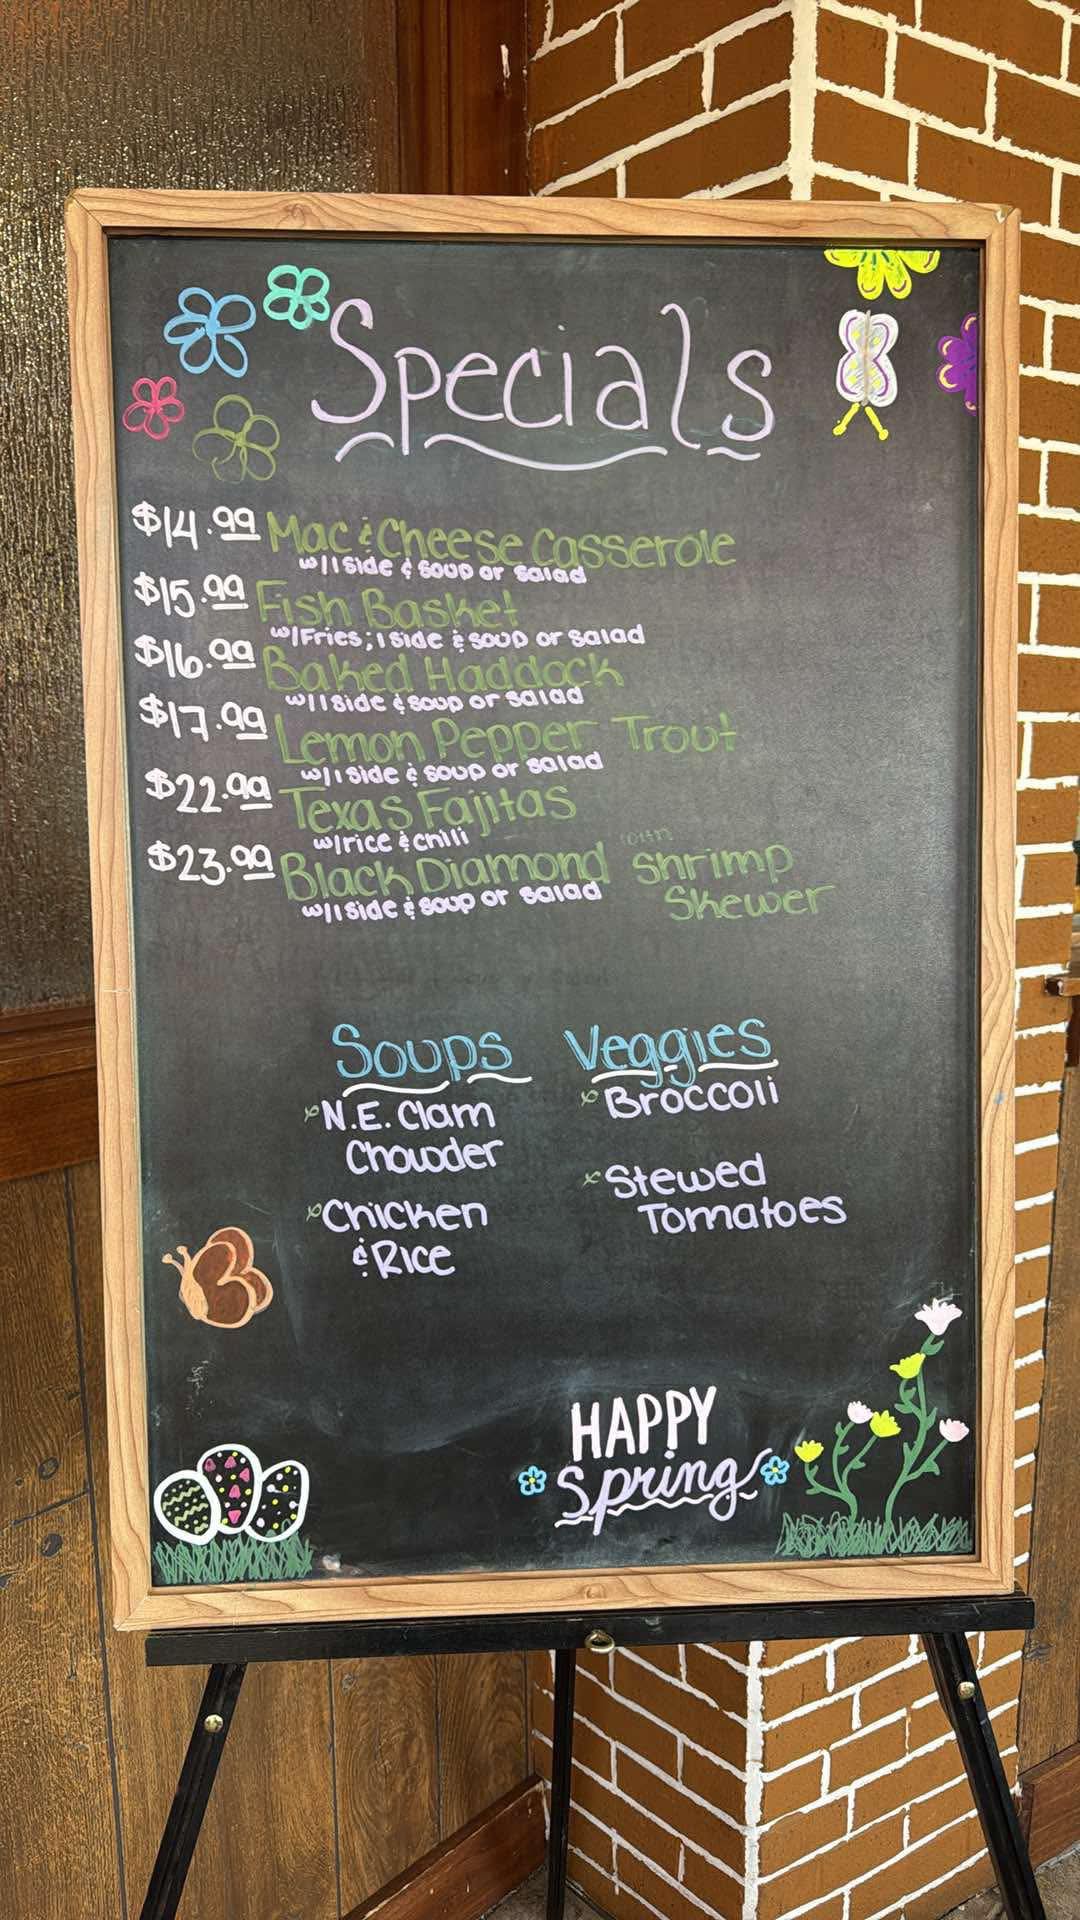 Specials
$14.99 Mac & Cheese Casserole
w/1 side & soup or salad
$15.99 Fish Basket
w/Fries; 1 side & soup or salad
$16.99 Baked Haddock
w/1 side & soup or salad
$17.99 Lemon Pepper Trout
w/1 side & soup or salad
$22.99 Texas Fajitas
w/rice & chili
$23.99 Black Diamond with Shrimp
Skewer
w/1 side & soup or salad
Soups
N.E. Clam
Chowder
Chicken
& Rice
Veggies
Broccoli
Stewed
Tomatoes
HAPPY
Spring